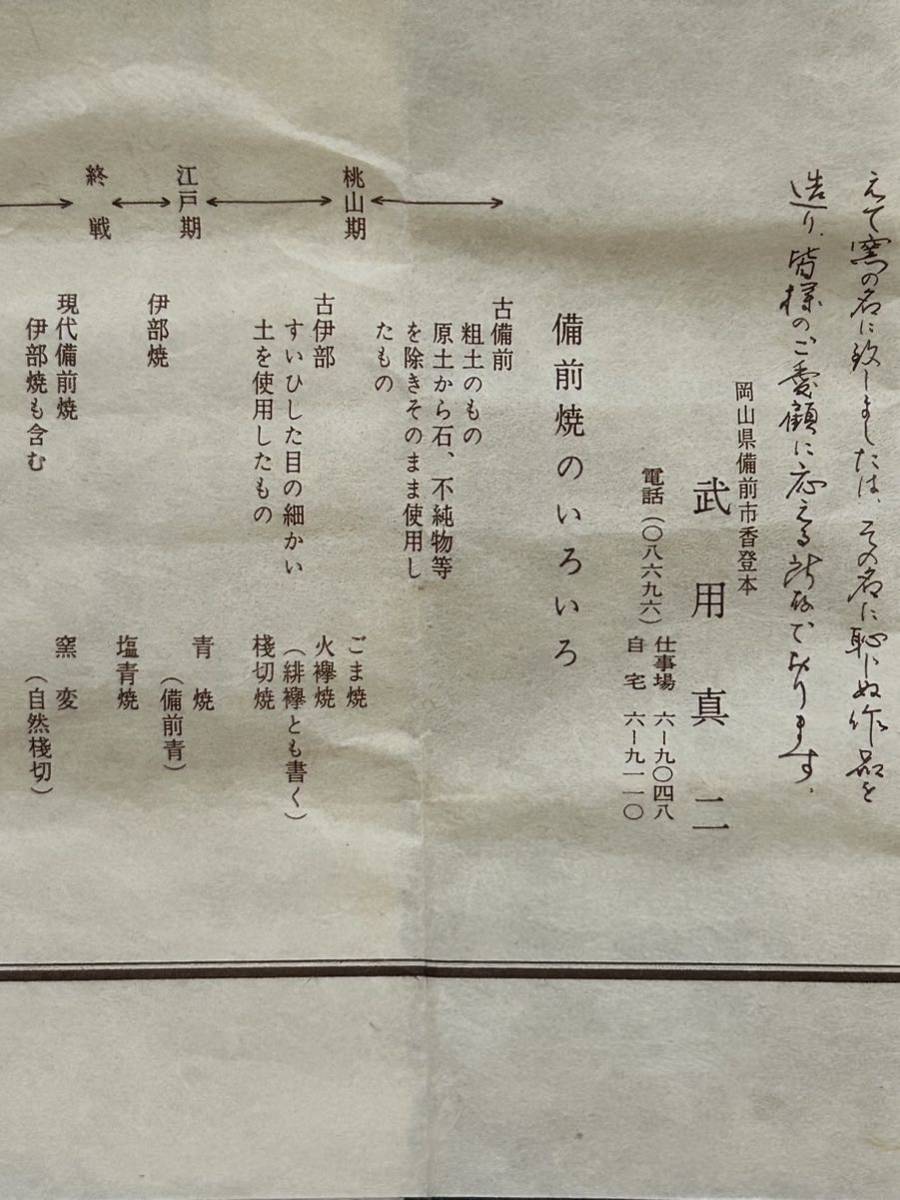 えて窯の名に致しましたは、その名に恥じぬ作品を
造り、皆様のご愛顧に応える所存でおります。
岡山県備前市香登本
武用真二
電話(〇八六九六)
仕事場 六ー九〇四八
自宅 六ー九一一〇
備前焼のいろいろ
古備前
粗土のもの
原土から石、不純物等
を除きそのまま使用し
たもの
桃山期
古伊部
すいひした目の細かい
土を使用したもの
江戸期
伊部焼
終戦
現代備前焼
伊部焼も含む
ごま焼
火襷焼
(緋襷とも書く)
棧切焼
青焼
(備前青)
塩青焼
窯変
(自然棧切)